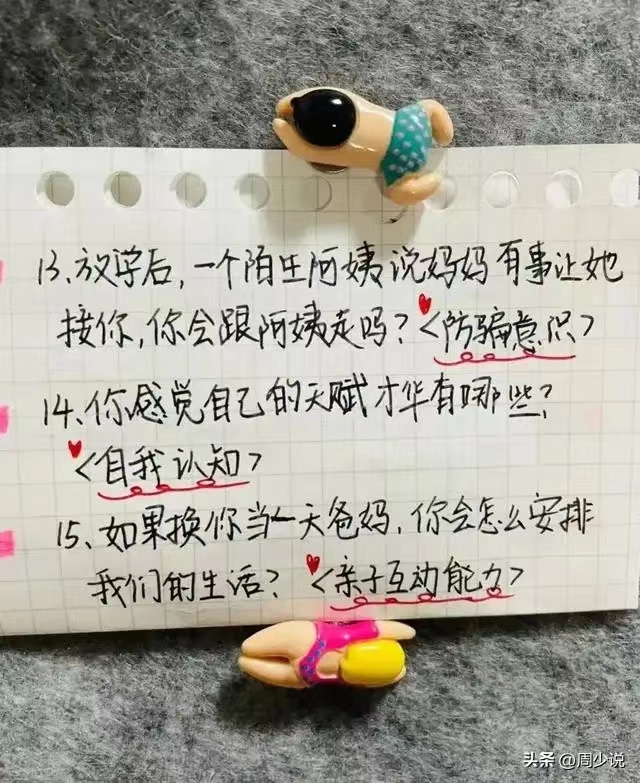 13、放学后，一个陌生阿姨说妈妈有事让她
接你，你会跟阿姨走吗？<防骗意识>
14、你感觉自己的天赋才华有哪些？
<自我认知>
15、如果换你当一天爸妈，你会怎么安排
我们的生活？<亲子互动能力>
头条 @周少说